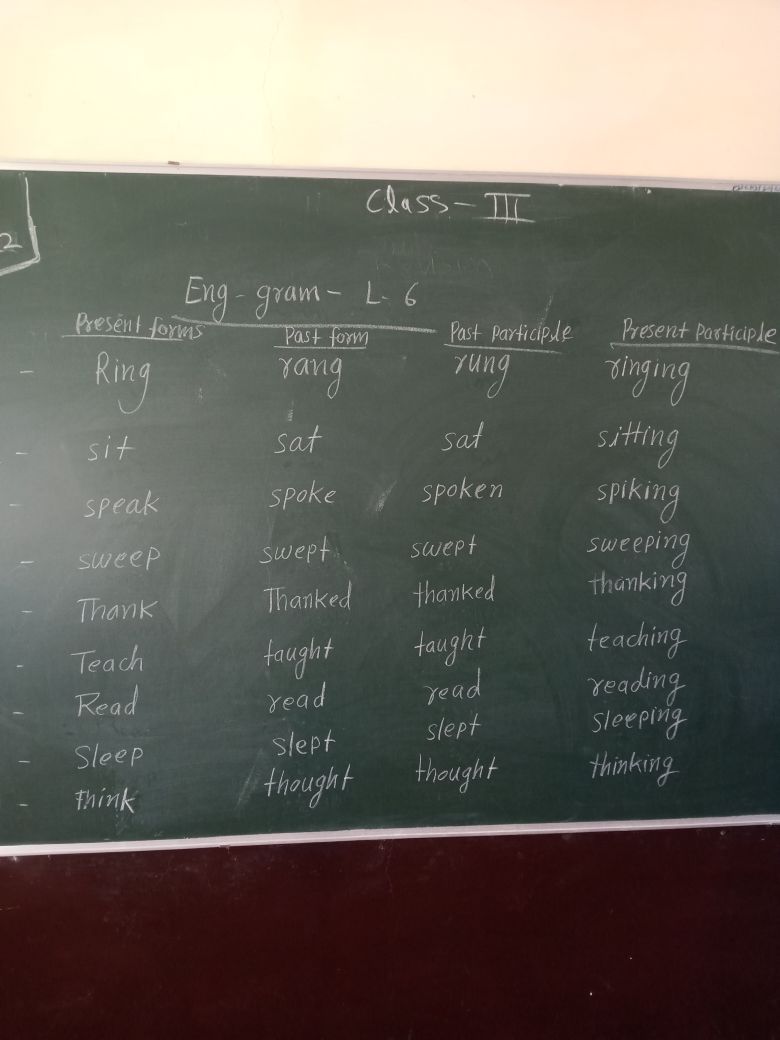 2
Class - III
Eng - gram - L - 6
Present forms Past form Past Participle Present Participle
- Ring rang rung ringing
- sit sat sat sitting
- speak spoke spoken spiking
- sweep swept swept sweeping
- Thank Thanked thanked thanking
- Teach taught taught teaching
- Read read read reading
- Sleep slept slept sleeping
- think thought thought thinking